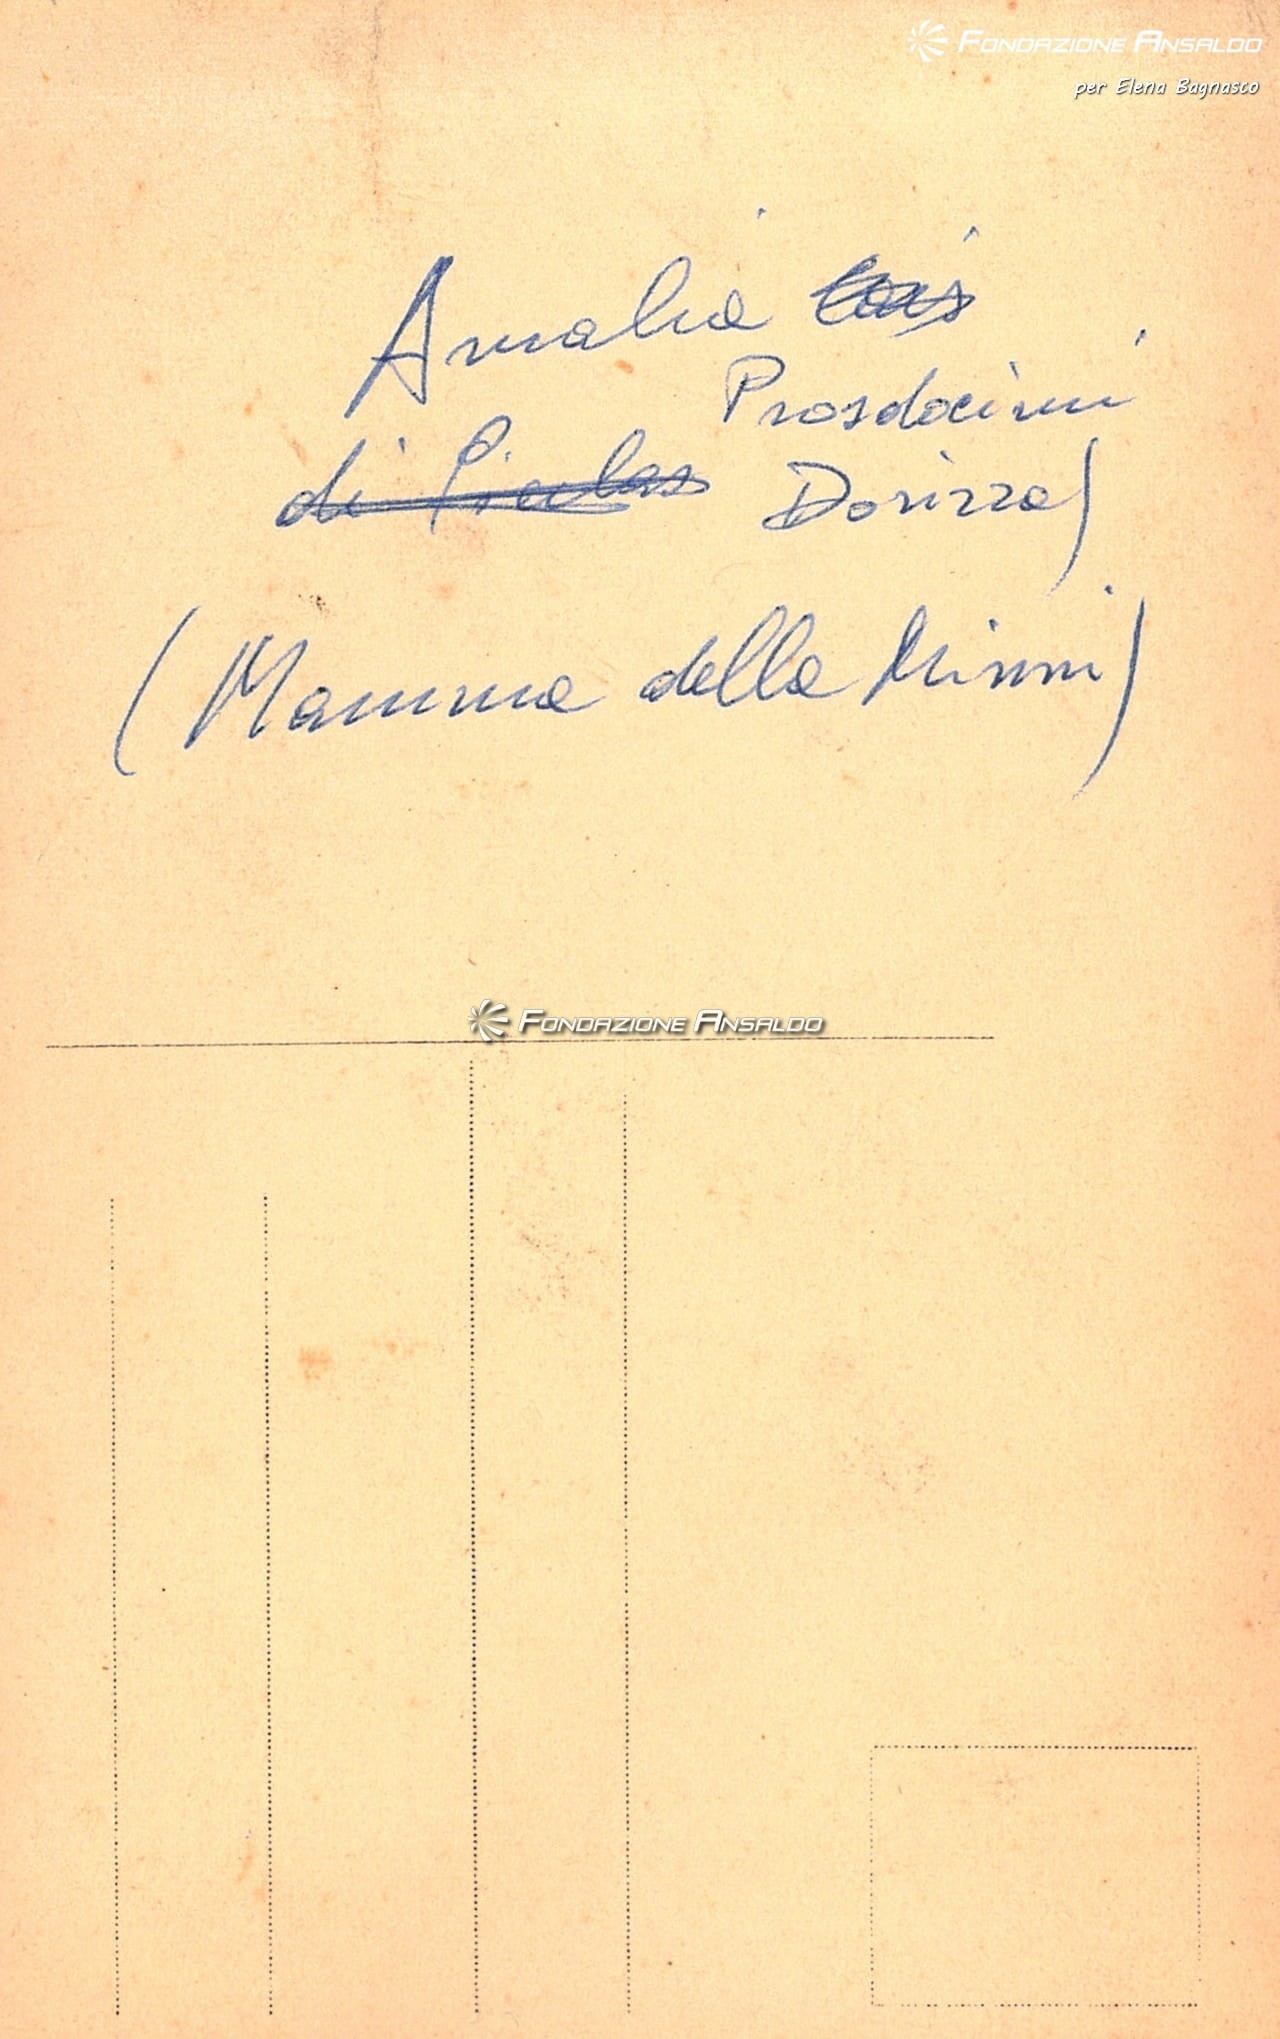 FONDAZIONE ANSALDO
per Elena Bagnasco
Amalia
Prosdocimi
di Dorizza)
(Mamma della Mimmi)
FONDAZIONE ANSALDO